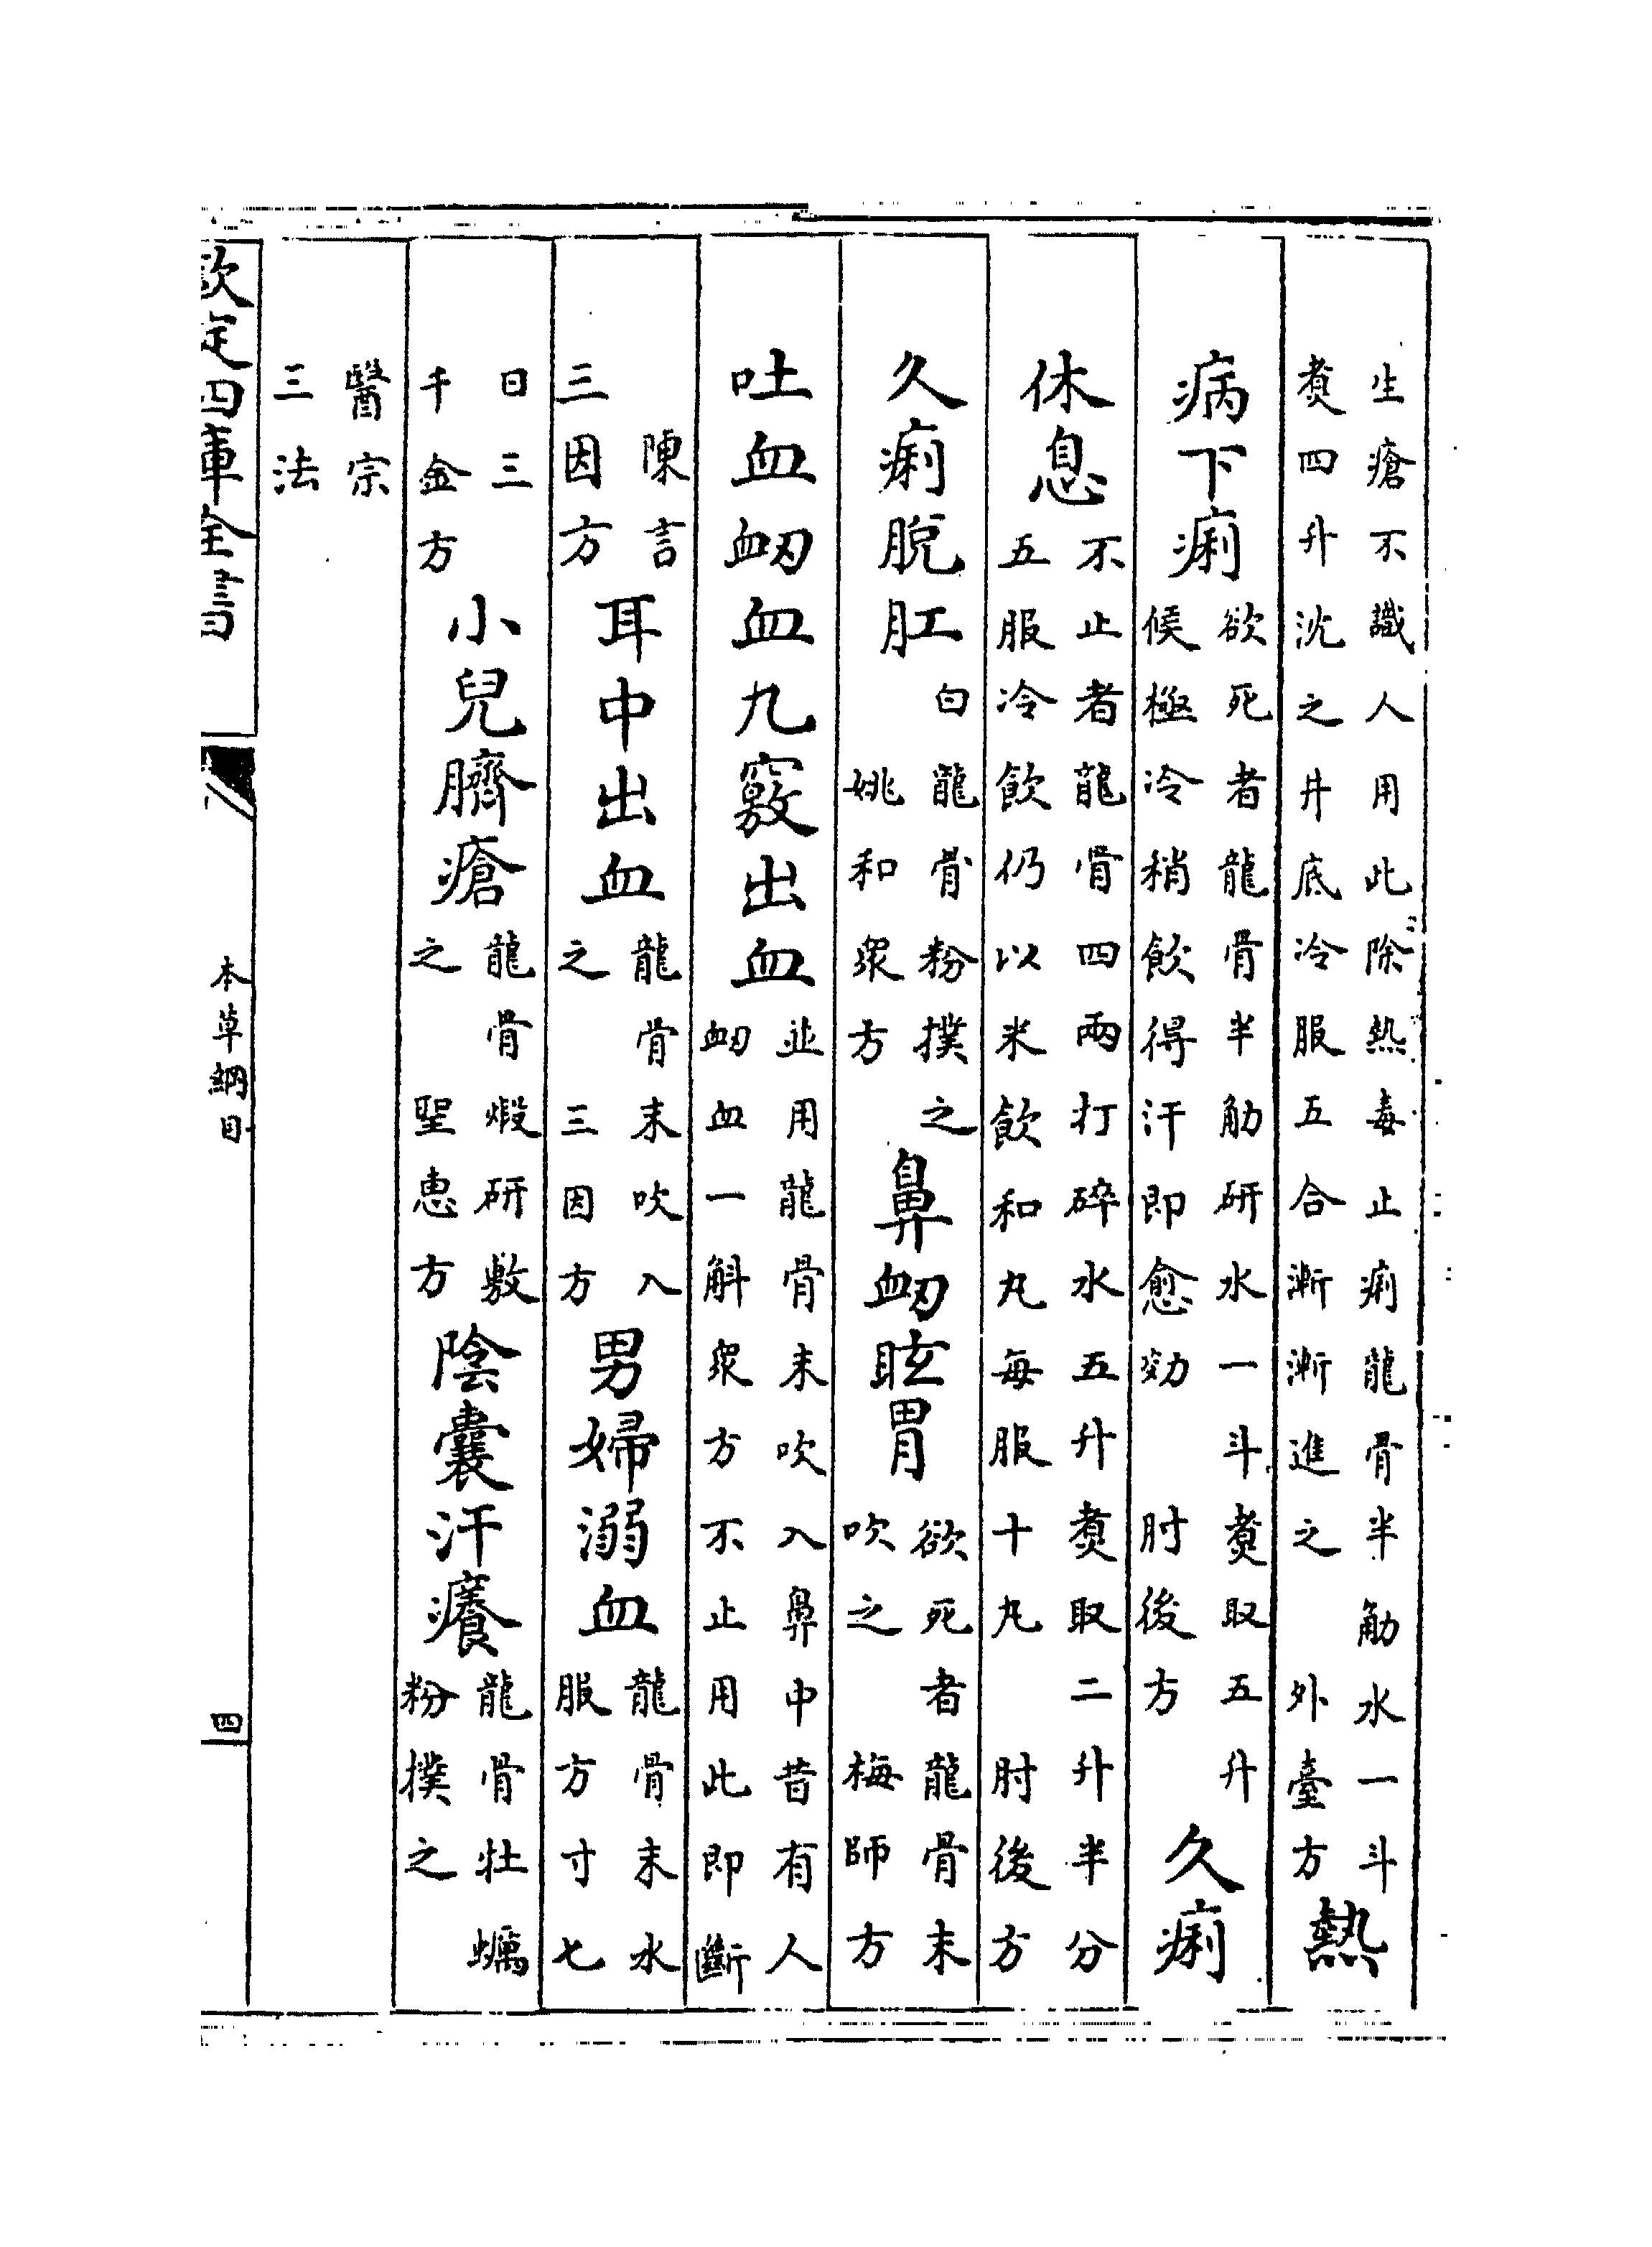 生瘡不識人用此除熱毒止痢龍骨半觔水一斗煑四升沈之井底冷服五合漸漸進之 外臺方 熱
病下痢 欲死者龍骨半觔研水一斗煑取五升候極冷稍飲得汗即愈効 肘後方 久痢
休息 不止者龍骨四兩打碎水五升煑取二升半分五服冷飲仍以米飲和丸每服十丸 肘後方
久痢脫肛 白龍骨粉撲之 姚和衆方 鼻衂眩胃 欲死者龍骨末吹之 梅師方
吐血衂血九竅出血 並用龍骨末吹入鼻中昔有人衂血一斛衆方不止用此即斷
陳言三因方 耳中出血 龍骨末吹入之 三因方 男婦溺血 龍骨末水服方寸七
日三 千金方 小兒臍瘡 龍骨煅研敷之 聖惠方 陰囊汗癢 龍骨牡蠣粉撲之
醫宗三法
欽定四庫全書
本草綱目
四